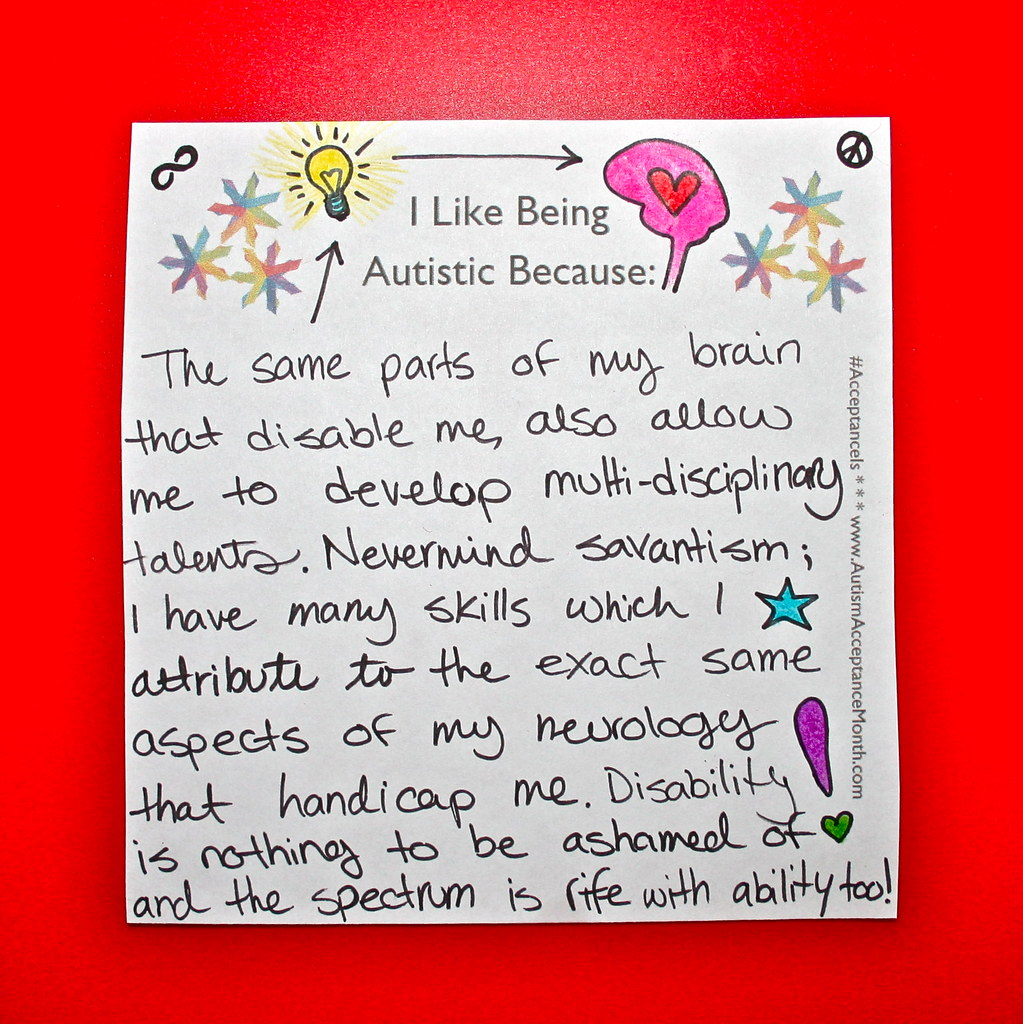 I Like Being
Autistic Because:
The same parts of my brain
that disable me, also allow
me to develop multi-disciplinary
talents. Nevermind savantism;
I have many skills which I
attribute to the exact same
aspects of my neurology
that handicap me. Disability
is nothing to be ashamed of
and the spectrum is rife with ability too!
#AcceptanceIs *** www.AutismAcceptanceMonth.com